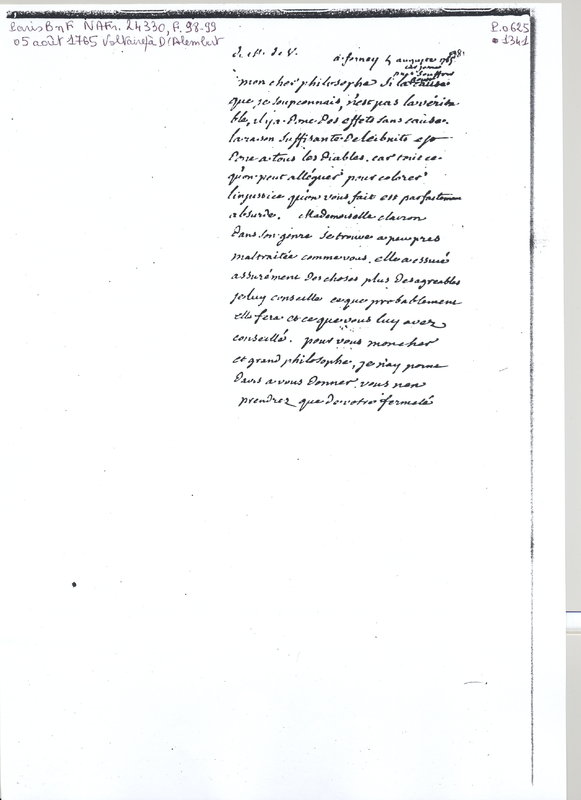 Paris BnF NAFr. 24330, f. 98-99
05 août 1765 Voltaire à D'Alembert
P.0625
1341
98.
de Mr. de V.
a ferney 5 auguste 1765
mon cher philosophe si la cause
que je soupconnais, n'est pas la verita
ble, il y a donc des effets sans cause.
la raison suffisante de leibnits est
donc a tous les diables. car tout ce
qu'on peut alléguer pour colorer
l'injustice qu'on vous fait est parfaitement
absurde. Mademoiselle clairon
dans son genre se trouve a peu pres
maltraitée comme vous. elle a essuié
assurément des choses plus desagreables
je luy conseille ce que probablement
elle fera et ce que vous luy avez
conseillé. pour vous mon cher
et grand philosophe, je n'ay point
d'avis a vous donner. vous n'en
prendrez que de votre fermeté